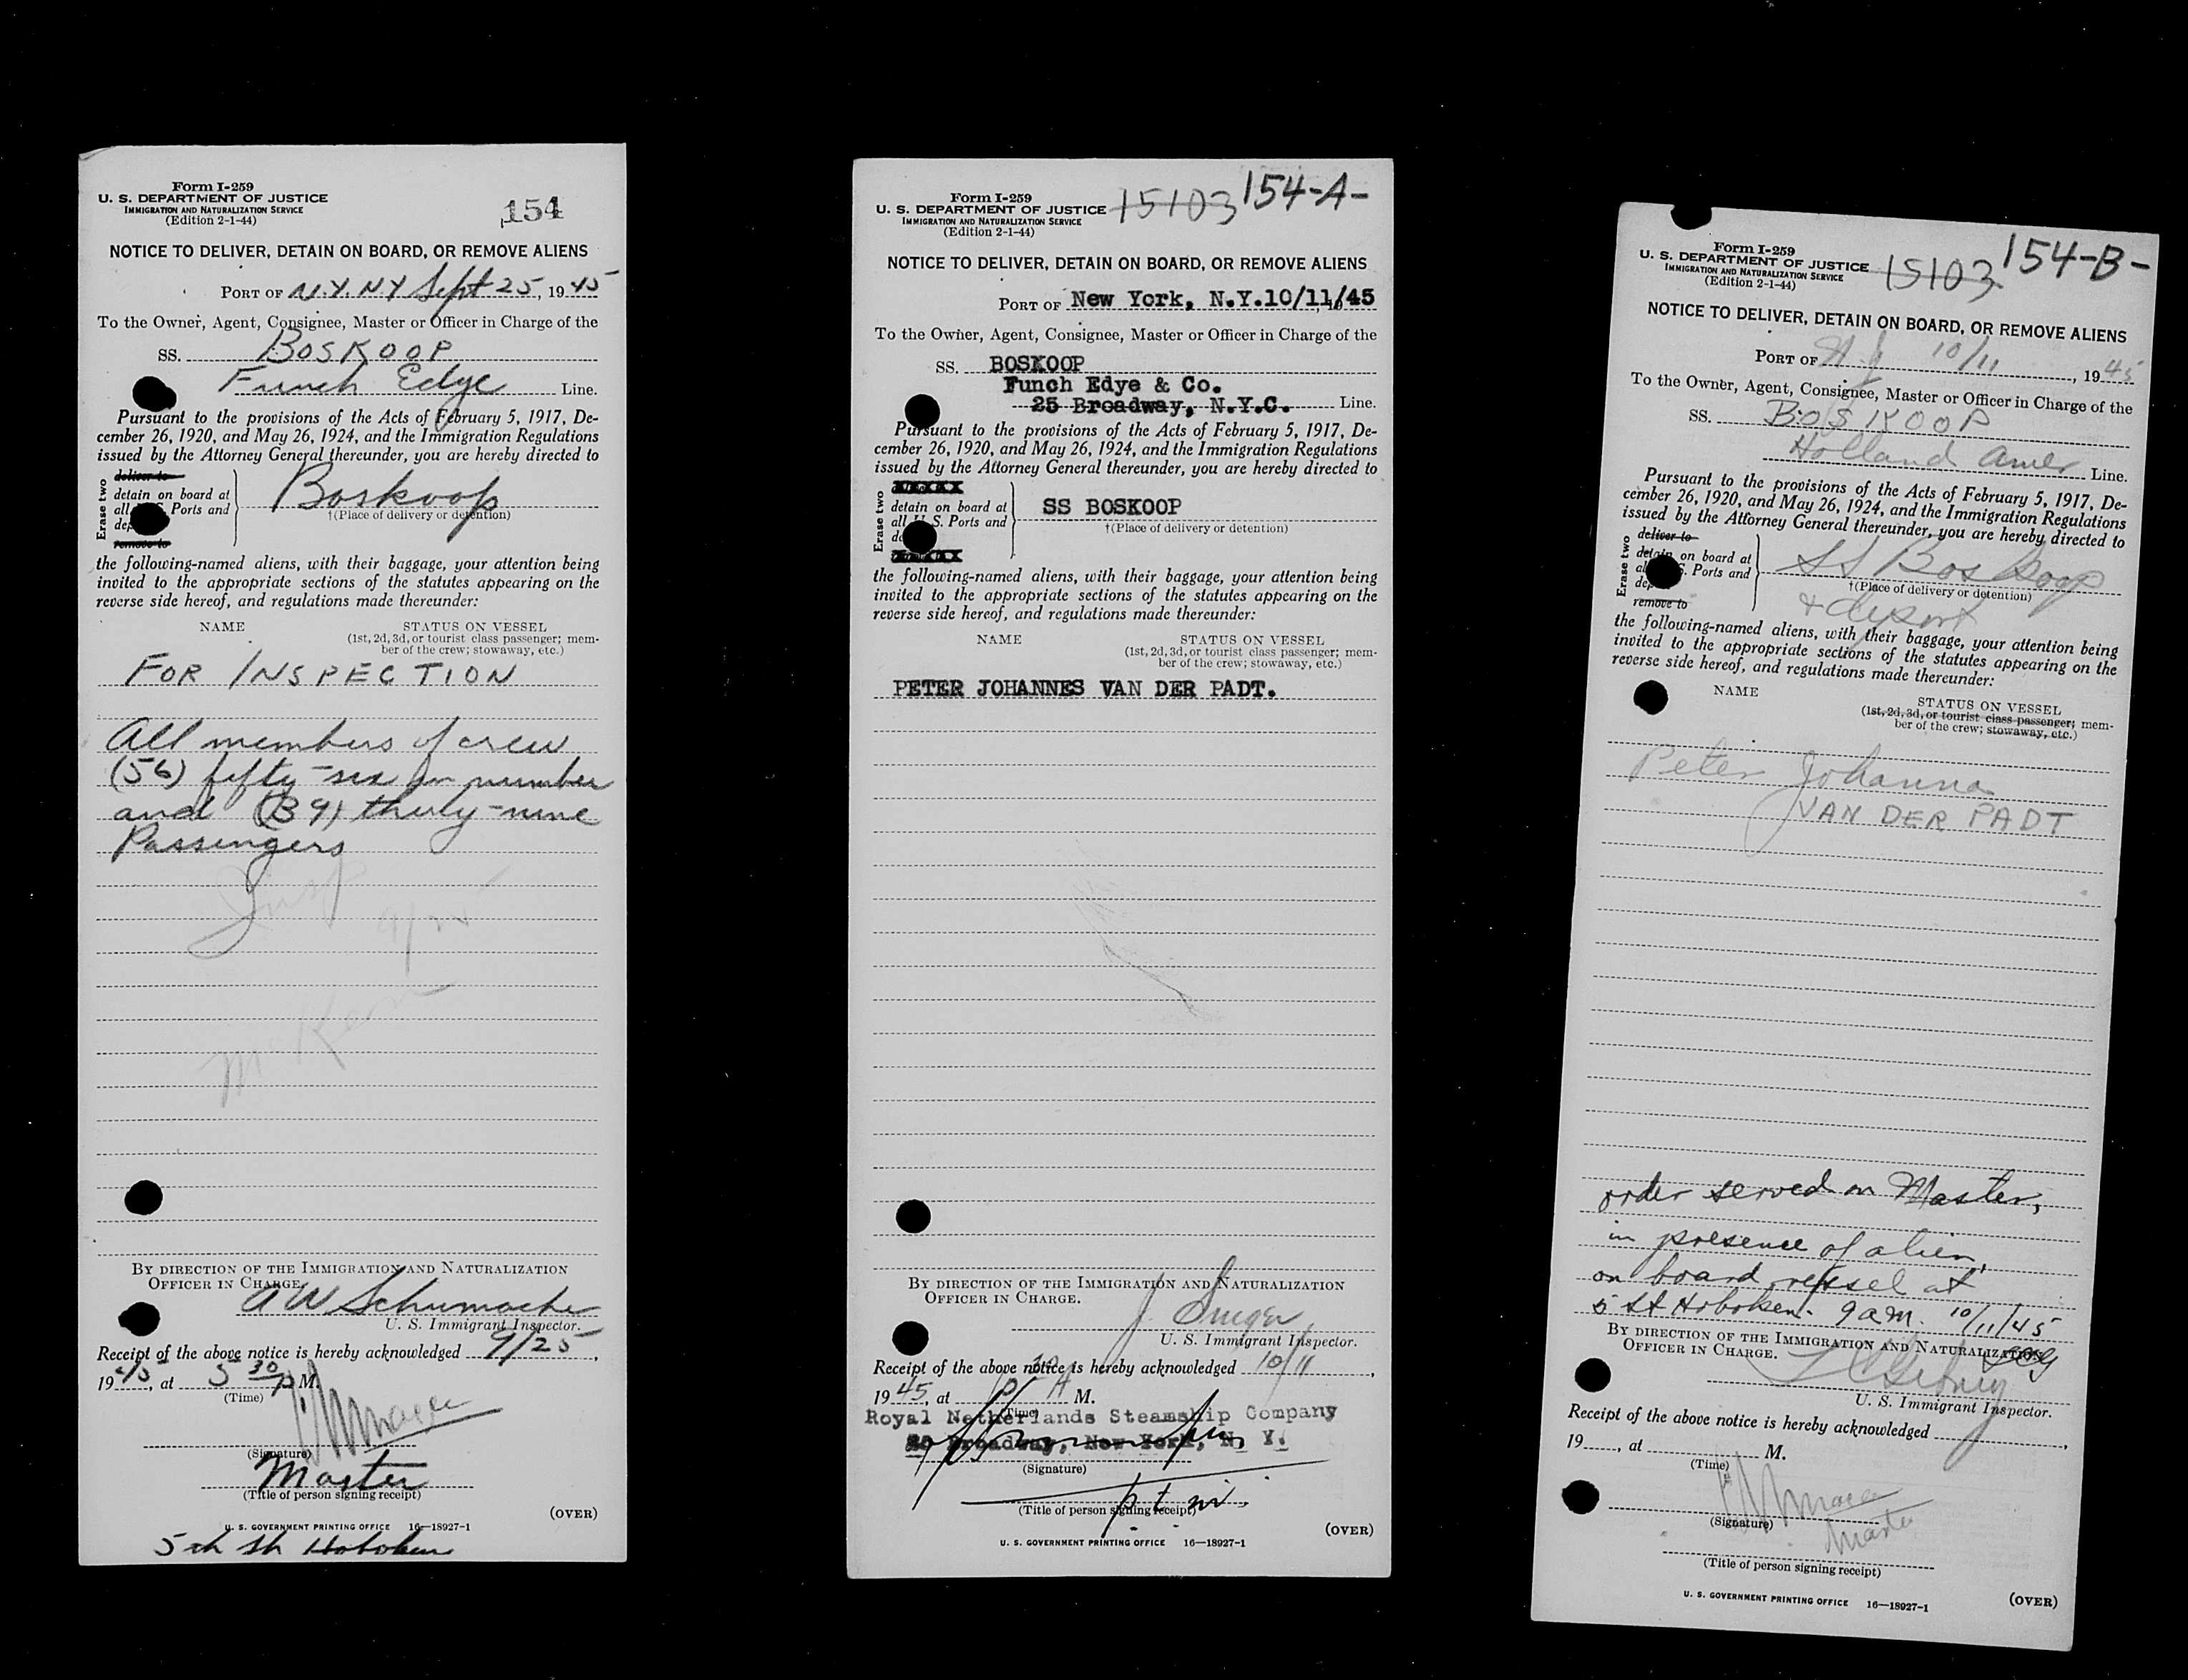 Form I-259
U. S. DEPARTMENT OF JUSTICE
IMMIGRATION AND NATURALIZATION SERVICE
(Edition 2-1-44)
154
NOTICE TO DELIVER, DETAIN ON BOARD, OR REMOVE ALIENS
PORT OF N.Y. N.Y Sept 25, 1945
To the Owner, Agent, Consignee, Master or Officer in Charge of the
SS. BOSKOOP
Funch Edye Line.
Pursuant to the provisions of the Acts of February 5, 1917, De-
cember 26, 1920, and May 26, 1924, and the Immigration Regulations
issued by the Attorney General thereunder, you are hereby directed to
Erase two
deliver to
detain on board at
all S. Ports and
remove to
Boskoop
†(Place of delivery or detention)
the following-named aliens, with their baggage, your attention being
invited to the appropriate sections of the statutes appearing on the
reverse side hereof, and regulations made thereunder:
NAME STATUS ON VESSEL
(1st, 2d, 3d, or tourist class passenger; mem-
ber of the crew; stowaway, etc.)
FOR INSPECTION
All members of crew
(56) fifty-six in number
and (39) thirty-nine
Passengers
Insp
McKenn
BY DIRECTION OF THE IMMIGRATION AND NATURALIZATION
OFFICER IN CHARGE.
A W Schumache
U. S. Immigrant Inspector.
Receipt of the above notice is hereby acknowledged 9/25,
1945, at 5 30 P M.
(Time)
(Signature)
Master
(Title of person signing receipt)
(OVER)
U. S. GOVERNMENT PRINTING OFFICE 16—18927-1
5th St Hoboken
Form I-259
U. S. DEPARTMENT OF JUSTICE
IMMIGRATION AND NATURALIZATION SERVICE
(Edition 2-1-44)
15103 154-A-
NOTICE TO DELIVER, DETAIN ON BOARD, OR REMOVE ALIENS
PORT OF New York, N.Y.10/11/45
To the Owner, Agent, Consignee, Master or Officer in Charge of the
SS. BOSKOOP
Funch Edye & Co.
25 Broadway, N.Y.C. Line.
Pursuant to the provisions of the Acts of February 5, 1917, De-
cember 26, 1920, and May 26, 1924, and the Immigration Regulations
issued by the Attorney General thereunder, you are hereby directed to
Erase two
detain on board at
all U. S. Ports and
SS BOSKOOP
†(Place of delivery or detention)
the following-named aliens, with their baggage, your attention being
invited to the appropriate sections of the statutes appearing on the
reverse side hereof, and regulations made thereunder:
NAME STATUS ON VESSEL
(1st, 2d, 3d, or tourist class passenger; mem-
ber of the crew; stowaway, etc.)
PETER JOHANNES VAN DER PADT.
BY DIRECTION OF THE IMMIGRATION AND NATURALIZATION
OFFICER IN CHARGE.
U. S. Immigrant Inspector.
Receipt of the above notice is hereby acknowledged 10/11,
1945, at A M.
(Time)
Royal Netherlands Steamship Company
Broadway, New York, N. Y.
(Signature)
(Title of person signing receipt)
(OVER)
U. S. GOVERNMENT PRINTING OFFICE 16—18927-1
Form I-259
U. S. DEPARTMENT OF JUSTICE
IMMIGRATION AND NATURALIZATION SERVICE
(Edition 2-1-44)
15103 154-B-
NOTICE TO DELIVER, DETAIN ON BOARD, OR REMOVE ALIENS
PORT OF N.Y 10/11, 1945
To the Owner, Agent, Consignee, Master or Officer in Charge of the
SS. BOSKOOP
Holland Amer Line.
Pursuant to the provisions of the Acts of February 5, 1917, De-
cember 26, 1920, and May 26, 1924, and the Immigration Regulations
issued by the Attorney General thereunder, you are hereby directed to
Erase two
deliver to
detain on board at
S. Ports and
remove to
SS Boskoop
†(Place of delivery or detention)
& deport
the following-named aliens, with their baggage, your attention being
invited to the appropriate sections of the statutes appearing on the
reverse side hereof, and regulations made thereunder:
NAME STATUS ON VESSEL
(1st, 2d, 3d, or tourist class passenger; mem-
ber of the crew; stowaway, etc.)
Peter Johanna
VAN DER PADT
order served on Master,
in presence of alien,
on board vessel at
5 St Hoboken. 9 am. 10/11/45
BY DIRECTION OF THE IMMIGRATION AND NATURALIZATION
OFFICER IN CHARGE.
U. S. Immigrant Inspector.
Receipt of the above notice is hereby acknowledged
19, at M.
(Time)
(Signature)
Master
(Title of person signing receipt)
U. S. GOVERNMENT PRINTING OFFICE 16—18927-1
(OVER)